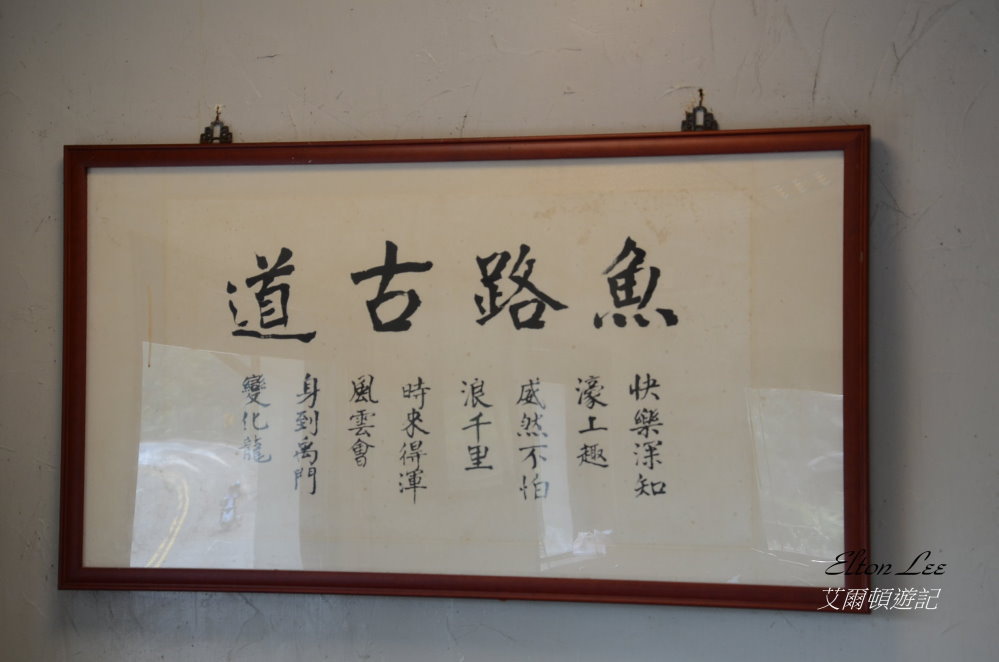 魚路古道
快樂深知
濠上趣
威然不怕
浪千里
時來得渾
風雲會
身到禹門
變化龍
Elton Lee
艾爾頓遊記